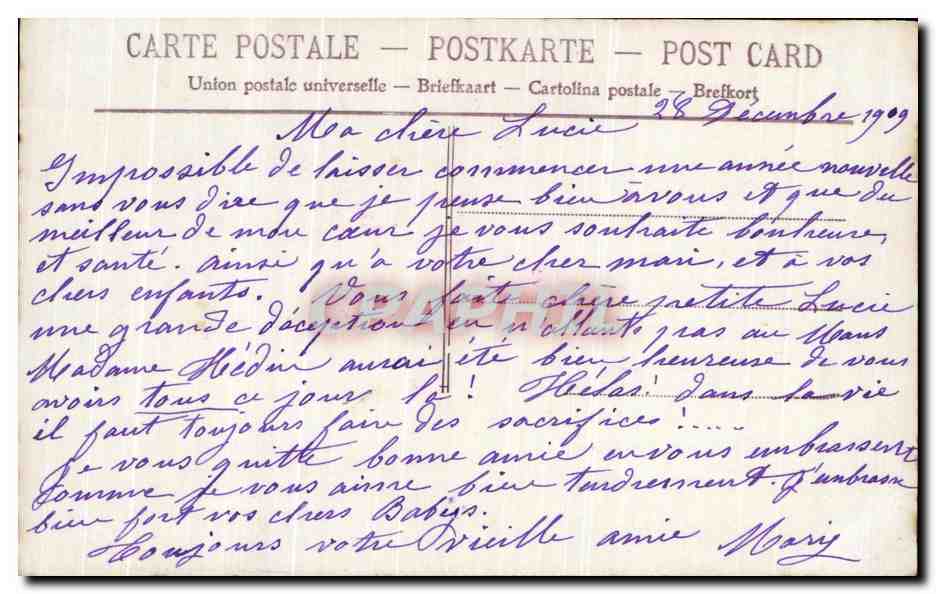 CARTE POSTALE — POSTKARTE — POST CARD
Union postale universelle — Briefkaart — Cartolina postale — Brefkort
28 Décembre 1909
Ma chère Lucie
Impossible de laisser commencer une année nouvelle
sans vous dire que je pense bien à vous et que du
meilleur de mon cœur je vous souhaite bonheur,
et santé. ainsi qu'à votre cher mari, et à vos
chers enfants. Vous faite chère petite Lucie
une grande déception en n'allant pas au Mans
Madame Hédin aurai été bien heureuse de vous
avoirs tous ce jour la! Hélas! dans la vie
il faut toujours faire des sacrifices!.....
Je vous quitte bonne amie en vous embrassent
comme je vous aime bien tendrement. J'embrasse
bien fort vos chers Babys.
Toujours votre vieille amie Mary
CPAPHIL